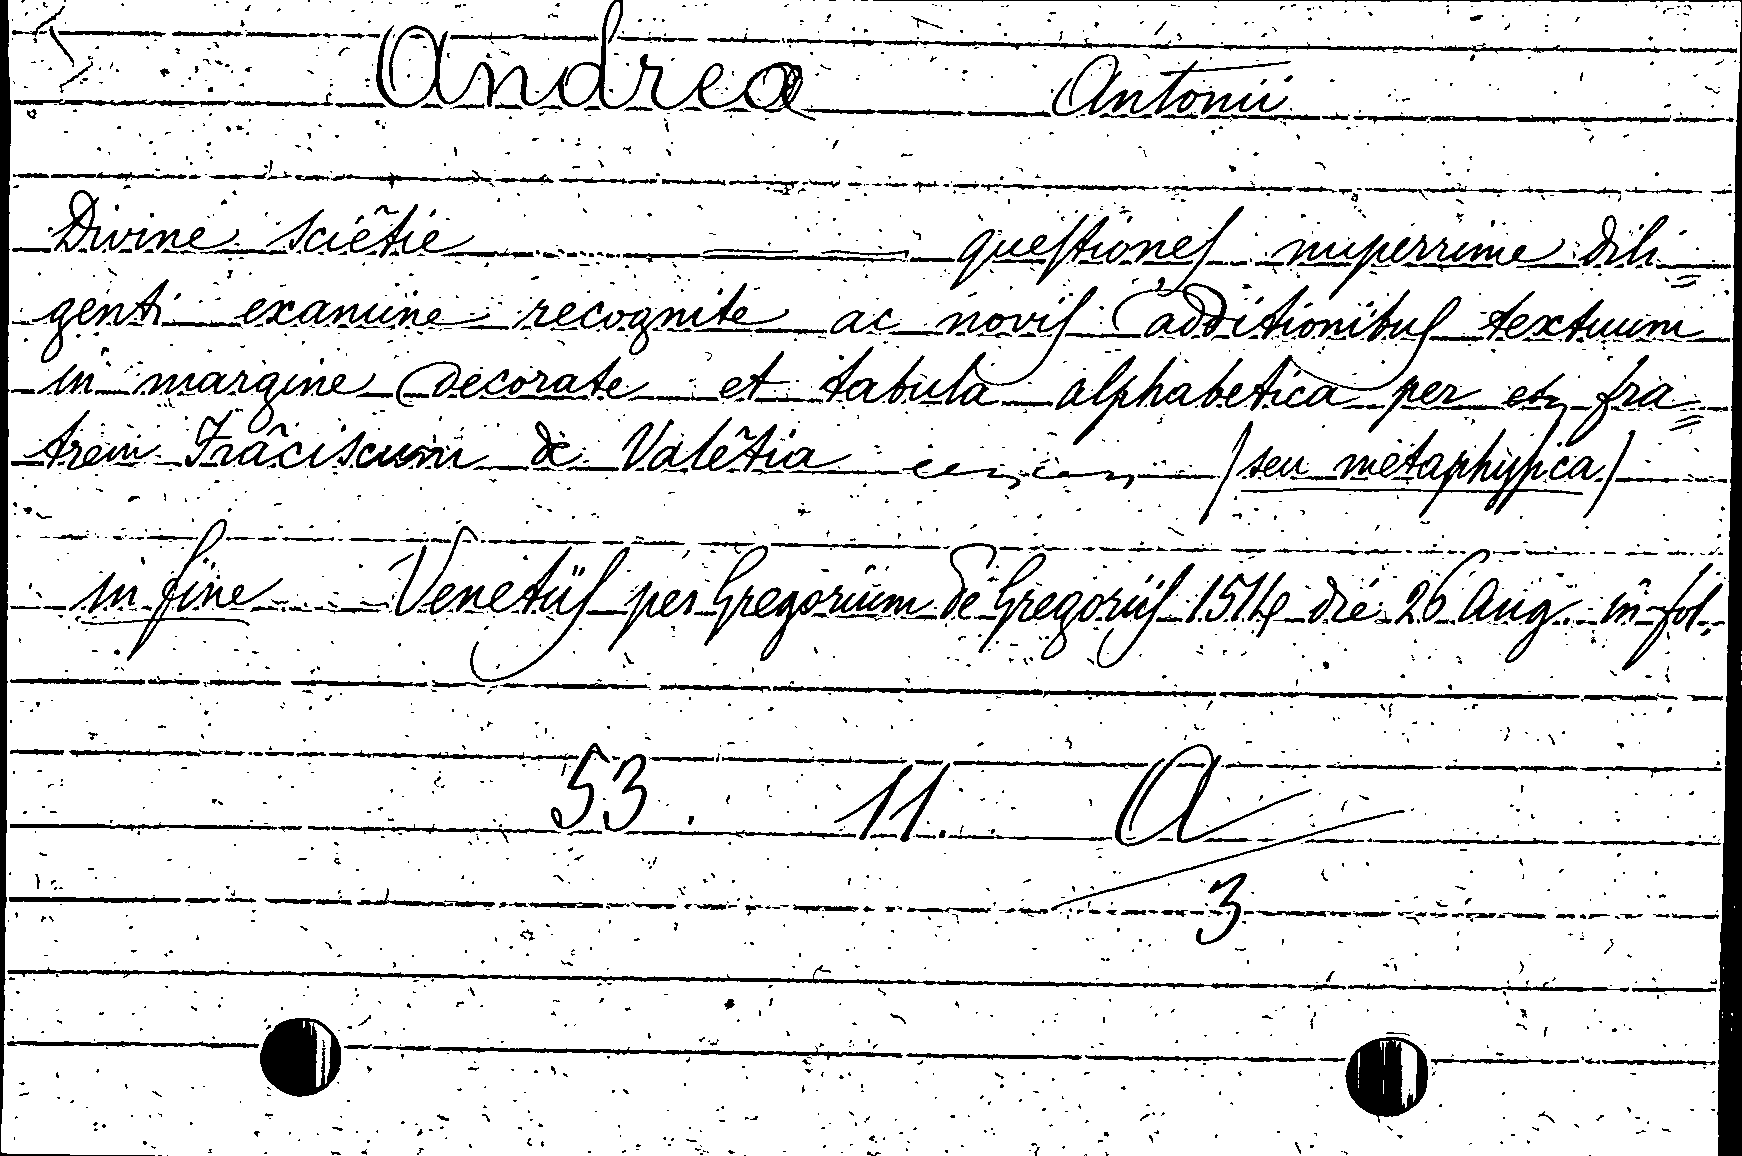 Andrea Antonii
Divine sciẽtie —— questiones nuperrime dili=
genti examine recognite ac novis additionibus textuum
in margine decorate et tabula alphabetica per fra=
trem Frãciscum de Valẽtia (seu metaphysica)
in fine Venetiis per Gregorium de Gregoriis 1514 die 26 Aug. in fol.
53. 11. A
3